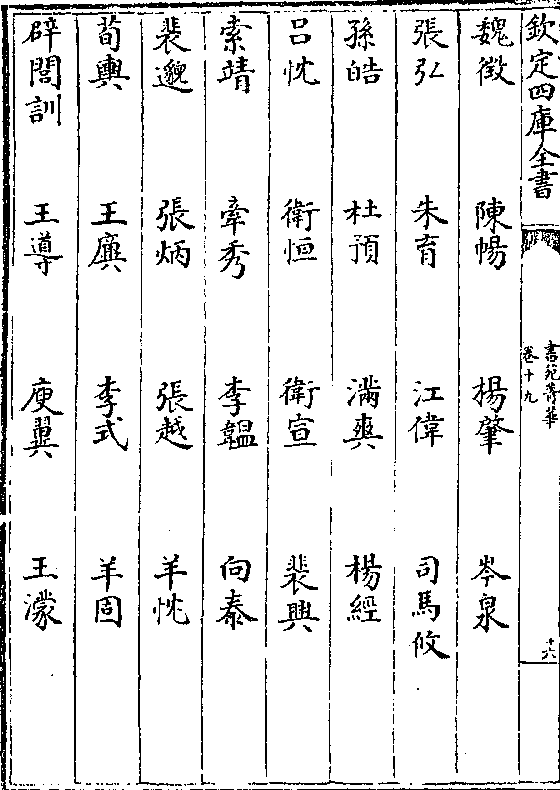 欽定四庫全書
書苑菁華
卷十九
十六
魏徵 陳暢 楊肇 岑泉
張弘 朱育 江偉 司馬攸
孫皓 杜預 滿爽 楊經
吕忱 衛恒 衛宣 裴興
索靖 牽秀 李韞 向泰
裴邈 張炳 張越 羊忱
荀輿 王廙 李式 羊固
辟閭訓 王導 庾翼 王濛